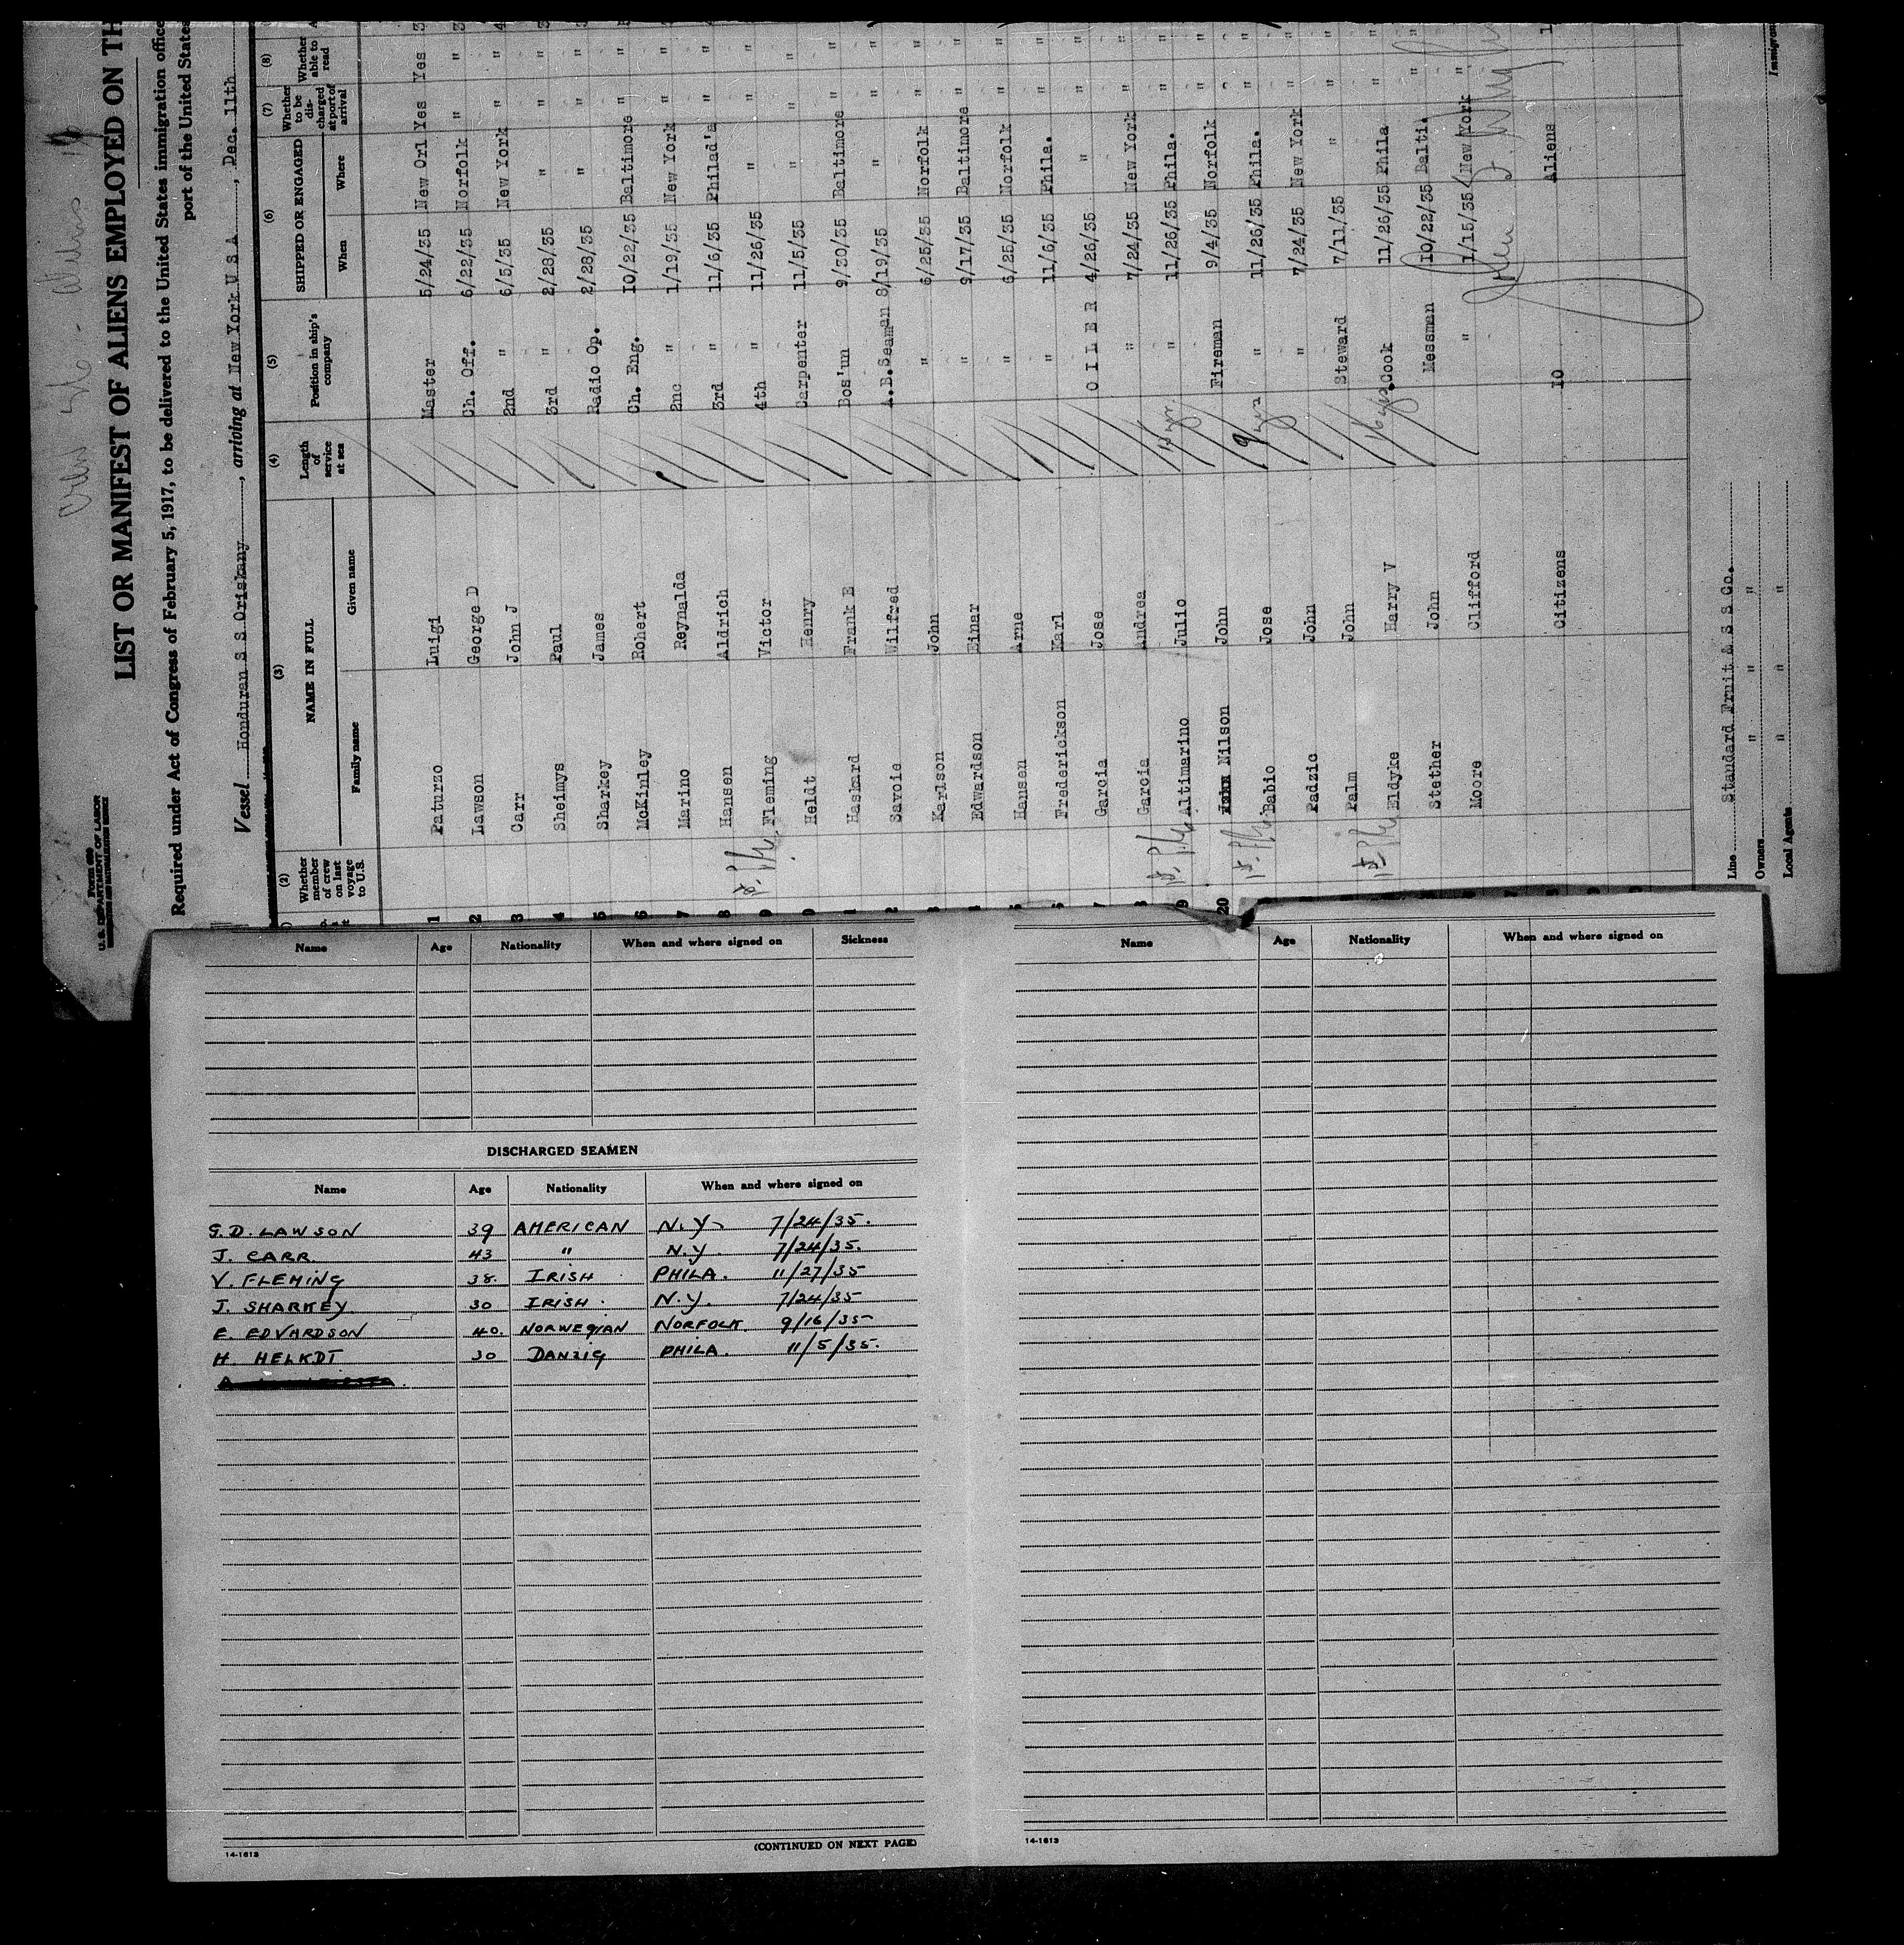 Crew
Form 680
U. S. DEPARTMENT OF LABOR
LIST OR MANIFEST OF ALIENS EMPLOYED ON TH
Required under Act of Congress of February 5, 1917, to be delivered to the United States immigration office
port of the United State
Vessel Honduran S S Oriskany, arriving at New York U S A, Dec. 11th
(2) (3) (4) (5) (6) (7) (8)
Whether member of crew on last voyage to U.S. NAME IN FULL Family name Given name Length of service at sea Position in ship's company SHIPPED OR ENGAGED When Where Whether to be discharged at port of arrival Whether able to read
1 Paturzo Luigi Master 5/24/35 New Orl Yes Yes
2 Lawson George D Ch. Off. 6/22/35 Norfolk " "
3 Carr John J 2nd " 6/5/35 New York " "
4 Sheimys Paul 3rd " 2/28/35 " " "
5 Sharkey James Radio Op. 2/28/35 " " "
6 McKinley Robert Ch. Eng. 10/22/35 Baltimore " "
7 Marino Reynalda 2nc " 1/19/35 New York " "
8 Hansen Aldrich 3rd " 11/6/35 Philad'a " "
9 Fleming Victor 4th " 11/26/35 " " "
0 Heldt Henry Carpenter 11/5/35 " " "
1 Haskard Frank E Bos'un 9/30/35 Baltimore " "
2 Savoie Wilfred A.B.Seaman 8/19/35 " " "
3 Karlson John " 6/25/35 Norfolk " "
4 Edwardson Einar " 9/17/35 Baltimore " "
5 Hansen Arne " 6/25/35 Norfolk " "
6 Frederickson Karl " 11/6/35 Phila. " "
7 Garcia Jose O I L E R 4/26/35 " " "
8 Garcia Andrea " 7/24/35 New York " "
9 Altimarino Julio " 11/26/35 Phila. " "
20 Nilson John Fireman 9/4/35 Norfolk " "
Babio Jose 9 yrs " 11/26/35 Phila. " "
Padzic John " 7/24/35 New York " "
Palm John Steward 7/11/35 " " "
Eldyke Harry V 16 yrs. Cook 11/26/35 Phila " "
Stether John Messman 10/22/35 Balti. " "
Moore Clifford " 1/15/35 New York " "
Citizens 10 Aliens 1
Line Standard Fruit & S S Co.
Owners " " "
Local Agents " " "
Immigran
Name Age Nationality When and where signed on Sickness
DISCHARGED SEAMEN
Name Age Nationality When and where signed on
G.D. LAWSON 39 AMERICAN N.Y. 7/24/35.
J. CARR 43 " N.Y. 7/24/35.
V. FLEMING 38. IRISH PHILA. 11/27/35
J. SHARKEY 30 IRISH. N.Y. 7/24/35
E. EDVARDSON 40. NORWEGIAN NORFOLK. 9/16/35
H. HELKDT 30 DANZIG PHILA. 11/5/35.
(CONTINUED ON NEXT PAGE)
14-1613
Name Age Nationality When and where signed on
14-1613